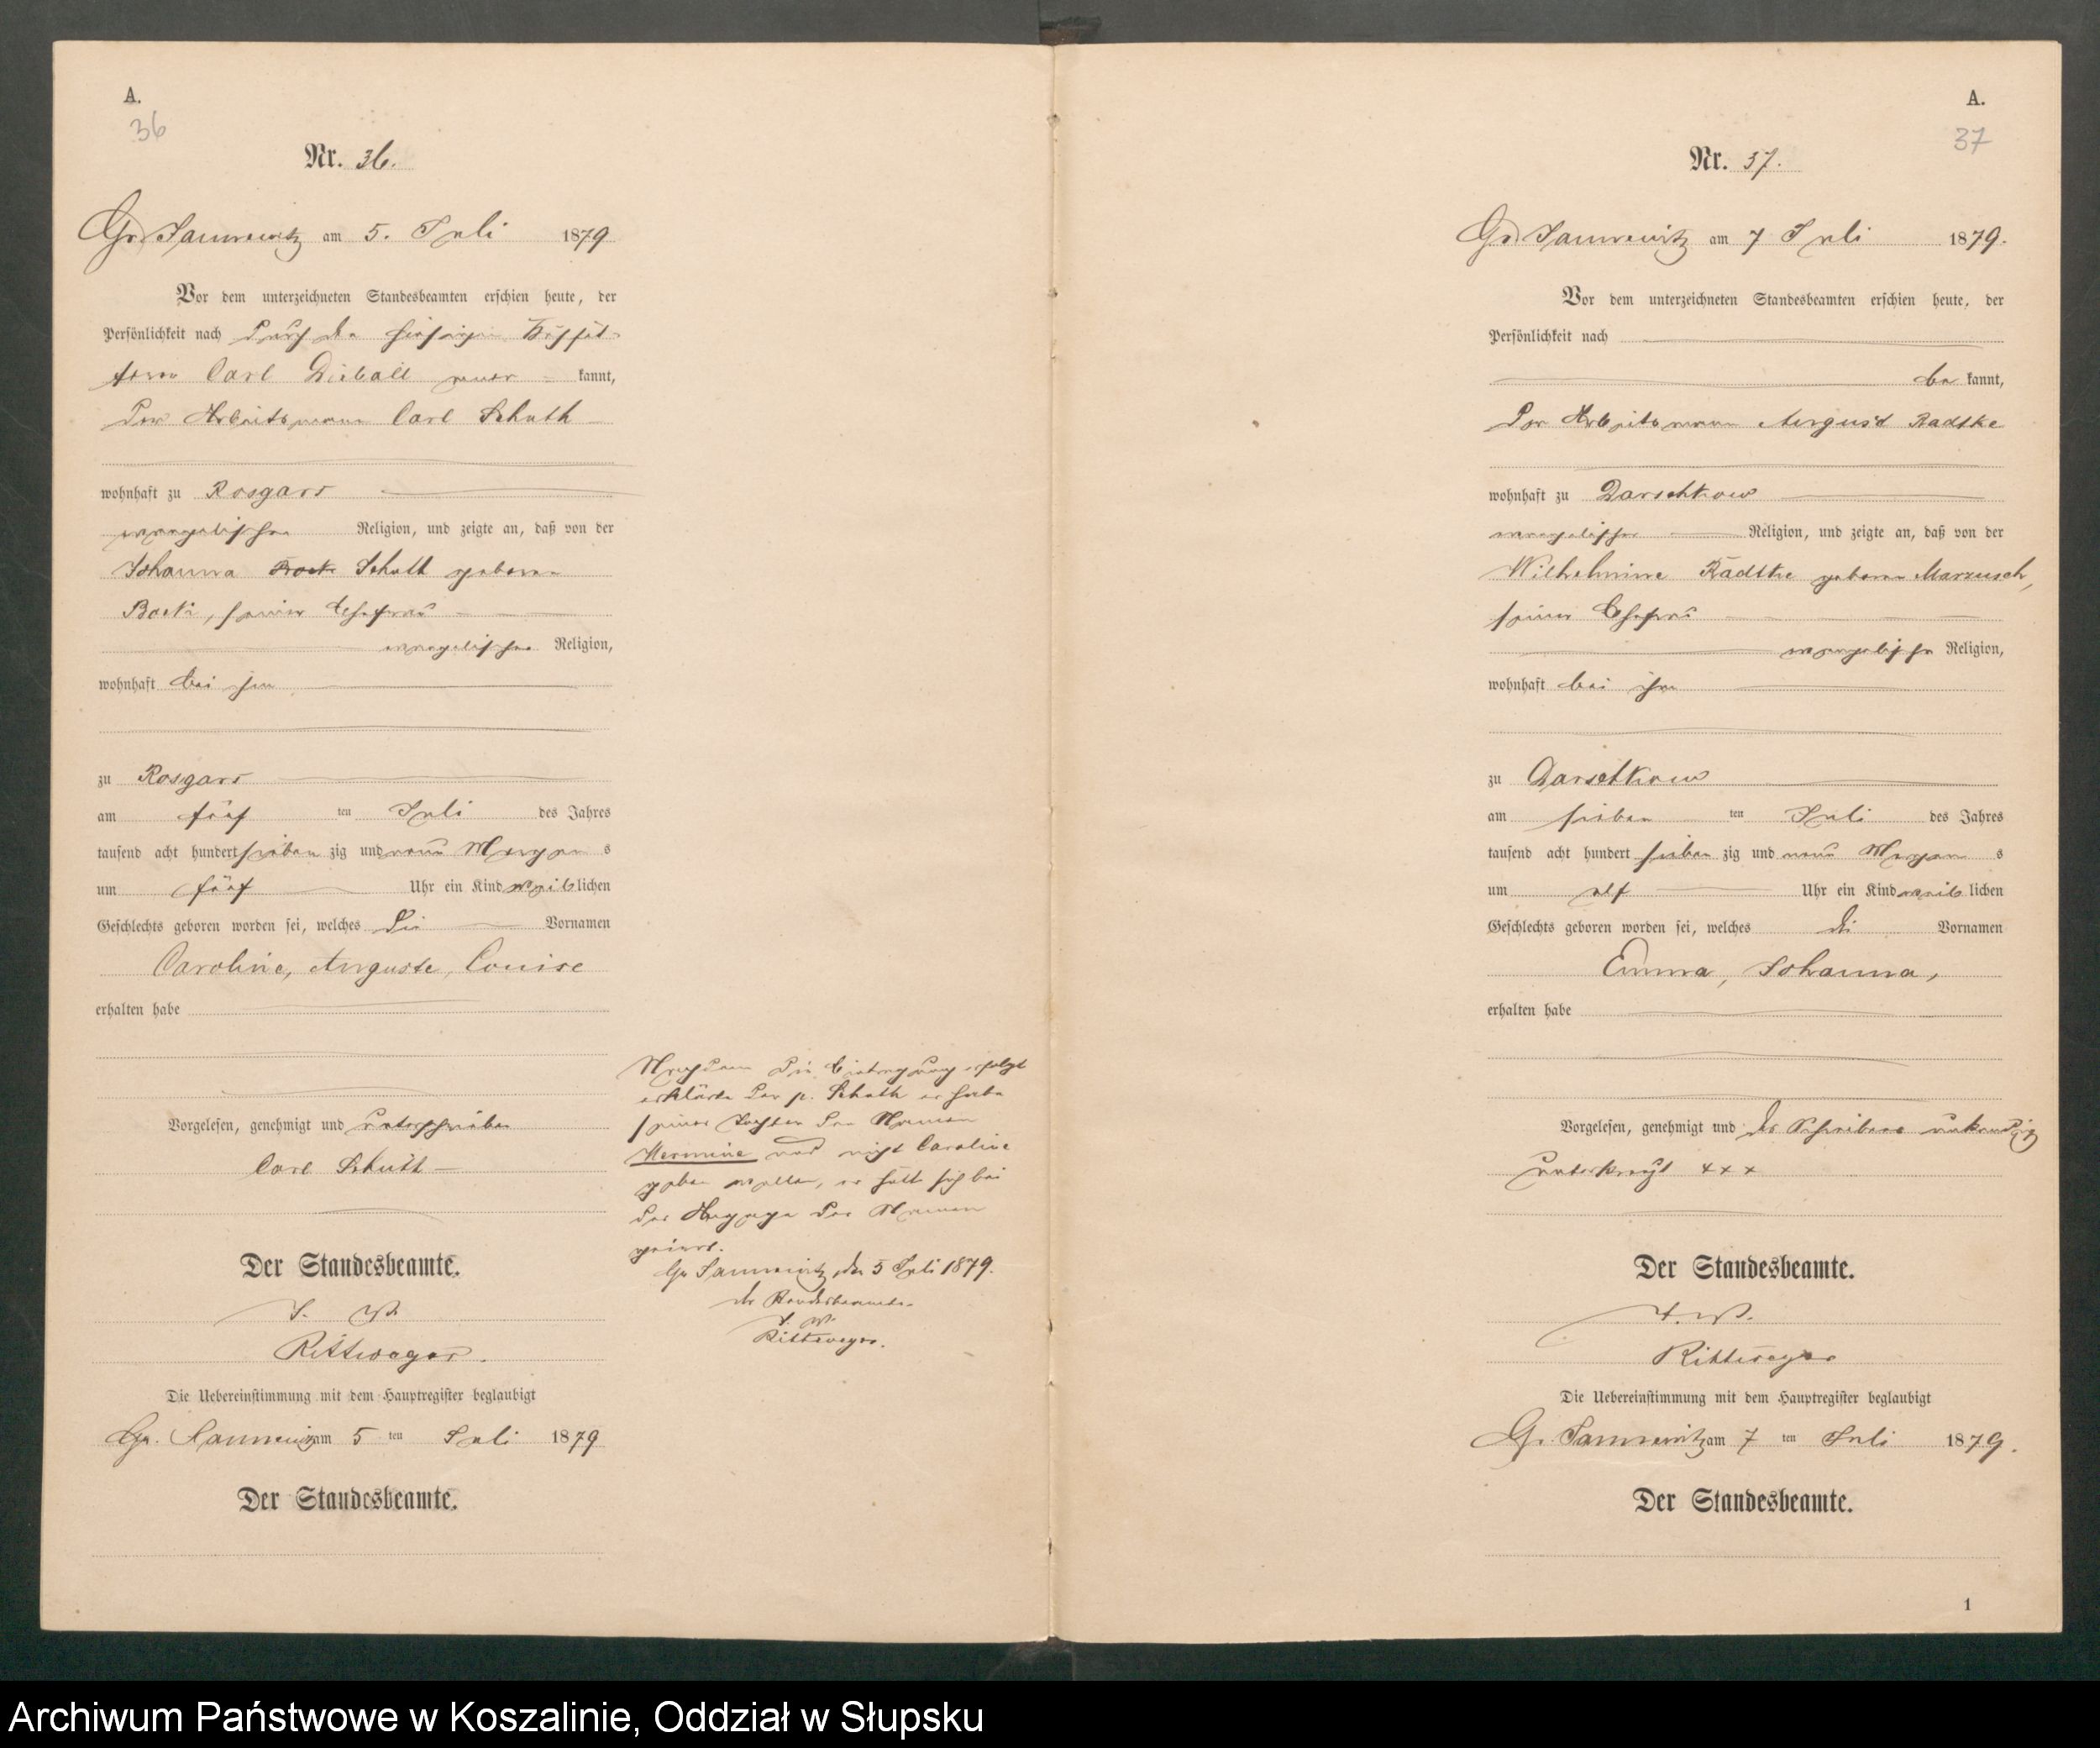 A.
36
Nr. 36.
Gr. Jannewitz am 5. Juli 1879
Vor dem unterzeichneten Standesbeamten erschien heute, der
Persönlichkeit nach durch den hiesigen
Carl aner kannt,
der Arbeitsmann Carl Schuth
wohnhaft zu Rosgars
evangelischer Religion, und zeigte an, daß von der
Johanna Schuth geborene
seiner Ehefrau
evangelischer Religion,
wohnhaft bei ihm
zu Rosgars
am fünf ten Juli des Jahres
tausend acht hundert sieben zig und neun Morgen s
um fünf Uhr ein Kind weib lichen
Geschlechts geboren worden sei, welches die Vornamen
Caroline, Auguste, Louise
erhalten habe
Vorgelesen, genehmigt und unterschrieben
Carl Schuth
Der Standesbeamte.
J. V.
Rittweger.
Die Uebereinstimmung mit dem Hauptregister beglaubigt
Gr. Jannewitz am 5 ten Juli 1879
Der Standesbeamte.
Nachdem die Eintragung erfolgt
erklärte der p. Schuth er habe
seiner Tochter den Namen
Hermine und nicht Caroline
geben wollen, er hätte sich bei
der Angage des Namen
geirrt.
Gr Jannewitz, den 5 Juli 1879.
der Standesbeamte.
J. V.
Rittweger.
A.
37
Nr. 37.
Gr. Jannewitz am 7 Juli 1879.
Vor dem unterzeichneten Standesbeamten erschien heute, der
Persönlichkeit nach
be kannt,
der Arbeitsmann August Radtke
wohnhaft zu Darsehkow
evangelischer Religion, und zeigte an, daß von der
Wilhelmine Radtke geborene Marzusch,
seiner Ehefrau
evangelischer Religion,
wohnhaft bei ihm
zu Darsehkow
am sieben ten Juli des Jahres
tausend acht hundert sieben zig und neun Morgen s
um elf Uhr ein Kind weib lichen
Geschlechts geboren worden sei, welches die Vornamen
Emma, Johanna,
erhalten habe
Vorgelesen, genehmigt und des Schreibens unkundig
unterkreuzt +++
Der Standesbeamte.
J. V.
Rittweger
Die Uebereinstimmung mit dem Hauptregister beglaubigt
Gr. Jannewitz am 7 ten Juli 1879.
Der Standesbeamte.
1
Archiwum Państwowe w Koszalinie, Oddział w Słupsku